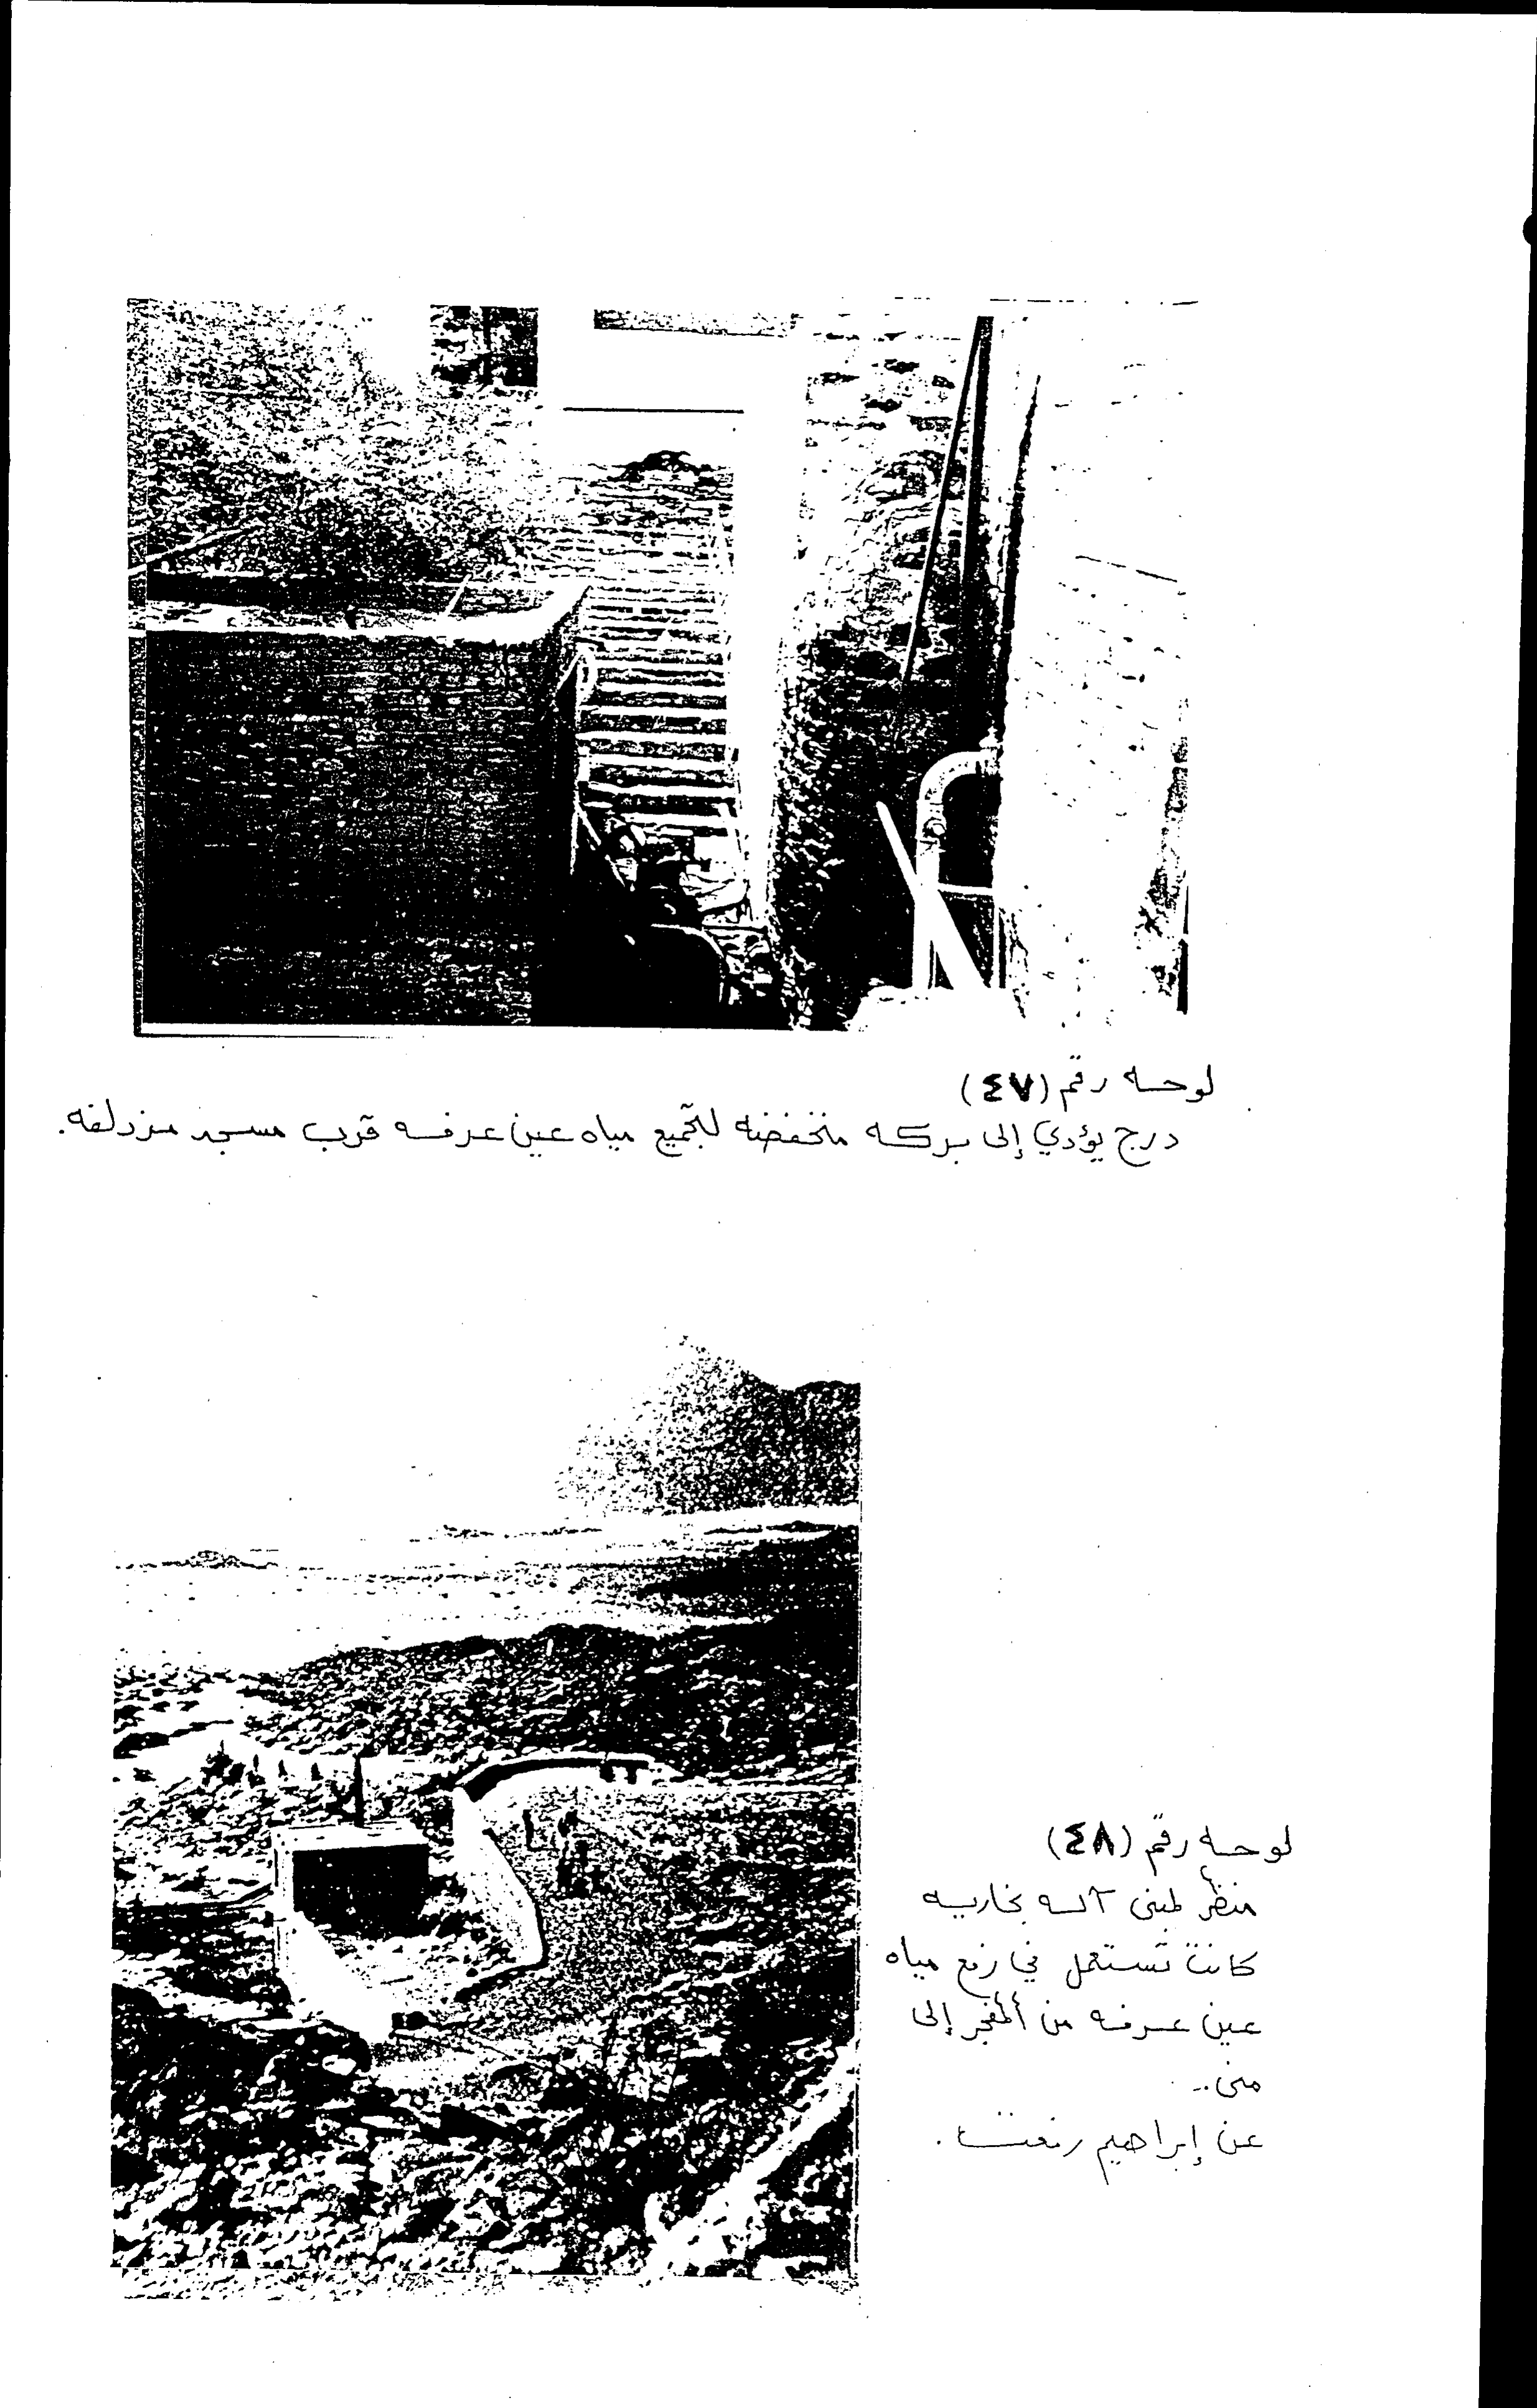 لوحة رقم (٤٧)
درج يؤدي إلى بركة منخفضة لتجميع مياه عين عرفة قرب مسجد مزدلفة.
لوحة رقم (٤٨)
منظر لمبنى آلة بخارية
كانت تستعمل في رفع مياه
عين عرفة من المفجر إلى
منى..
عن إبراهيم رفعت.